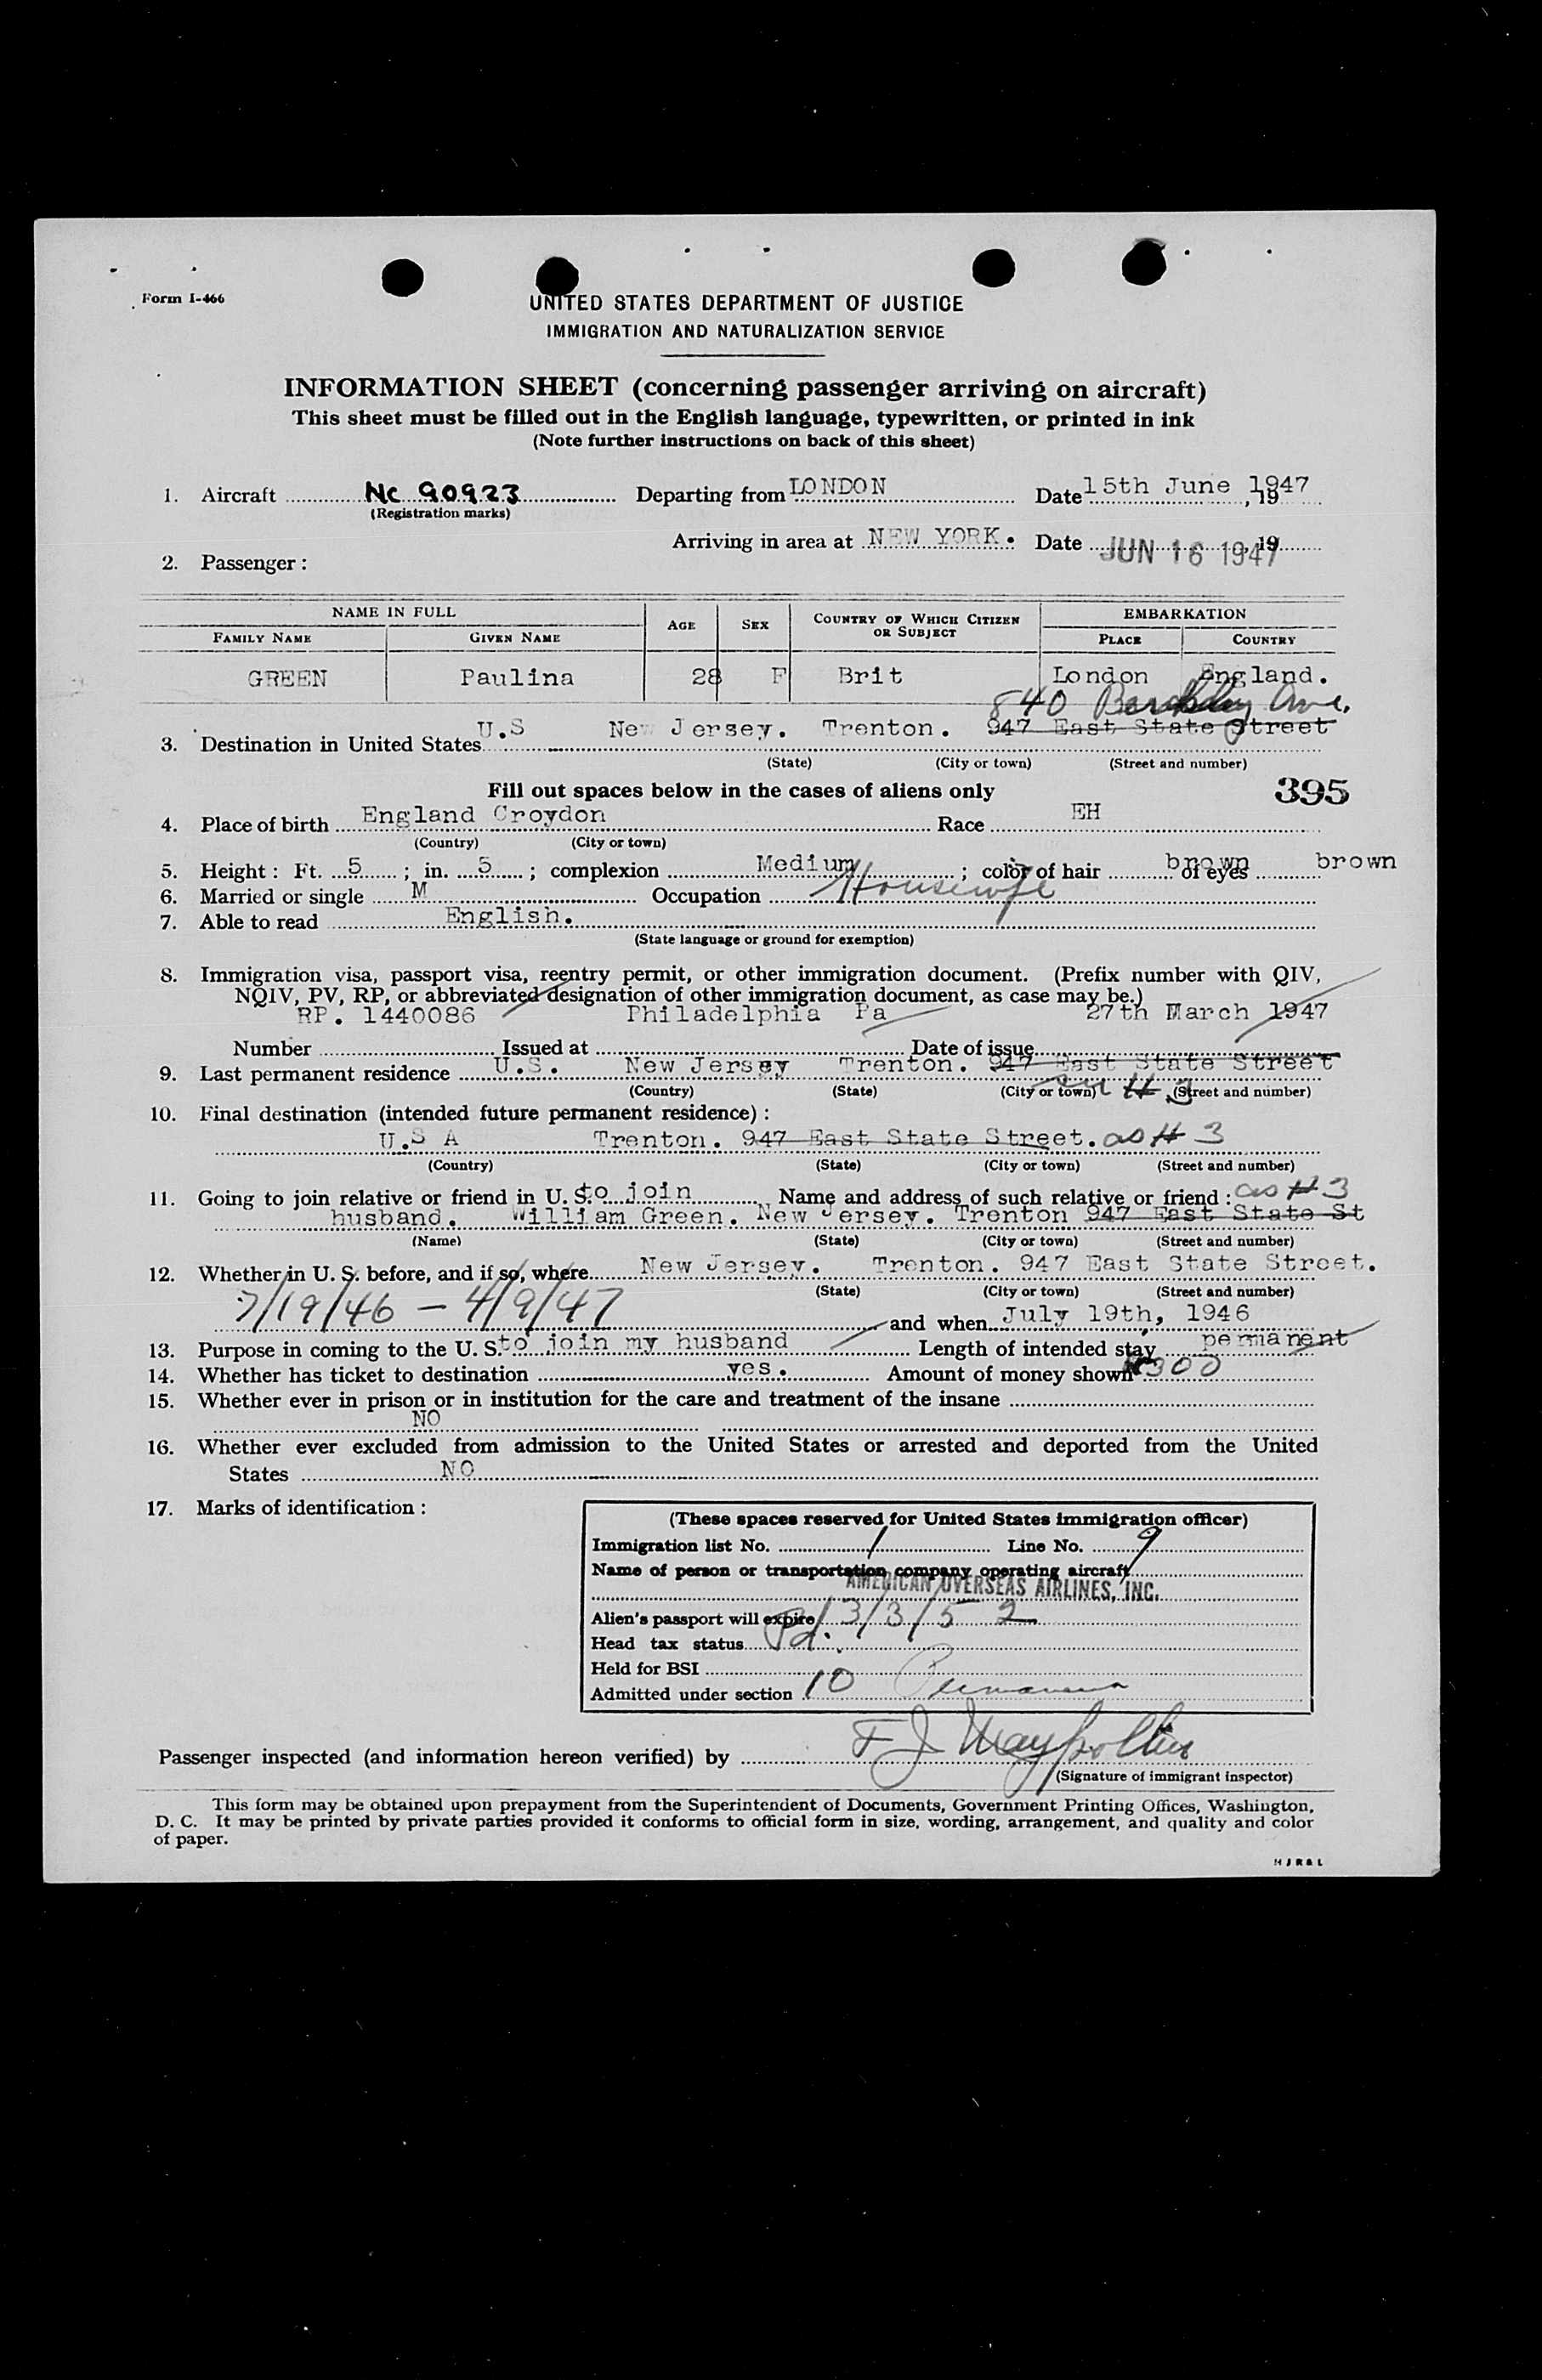 Form I-466
UNITED STATES DEPARTMENT OF JUSTICE
IMMIGRATION AND NATURALIZATION SERVICE
INFORMATION SHEET (concerning passenger arriving on aircraft)
This sheet must be filled out in the English language, typewritten, or printed in ink
(Note further instructions on back of this sheet)
1. Aircraft Nc 90923 Departing from LONDON Date 15th June 1947, 19
(Registration marks)
Arriving in area at NEW YORK. Date JUN 16 1947, 19
2. Passenger:
NAME IN FULL AGE SEX COUNTRY OF WHICH CITIZEN OR SUBJECT EMBARKATION
FAMILY NAME GIVEN NAME PLACE COUNTRY
GREEN Paulina 28 F Brit London England.
840 Ave.
3. Destination in United States U.S New Jersey. Trenton. 947 East State Street
(State) (City or town) (Street and number)
Fill out spaces below in the cases of aliens only 395
4. Place of birth England Croydon Race EH
(Country) (City or town)
5. Height: Ft. 5; in. 5; complexion Medium; color of hair brown of eyes brown
6. Married or single M Occupation Housewife
7. Able to read English.
(State language or ground for exemption)
8. Immigration visa, passport visa, reentry permit, or other immigration document. (Prefix number with QIV,
NQIV, PV, RP, or abbreviated designation of other immigration document, as case may be.)
RP. 1440086 Philadelphia Pa 27th March 1947
Number Issued at Date of issue
9. Last permanent residence U.S. New Jersey Trenton. 947 East State Street
(Country) (State) (City or town) # 3 (Street and number)
10. Final destination (intended future permanent residence):
U.S A Trenton. 947 East State Street. as # 3
(Country) (State) (City or town) (Street and number)
11. Going to join relative or friend in U. S. to join Name and address of such relative or friend: as # 3
husband. William Green. New Jersey. Trenton 947 East State St
(Name) (State) (City or town) (Street and number)
12. Whether in U. S. before, and if so, where New Jersey. Trenton. 947 East State Street.
(State) (City or town) (Street and number)
7/19/46 - 4/9/47 and when July 19th, 1946
13. Purpose in coming to the U. S. to join my husband Length of intended stay permanent
14. Whether has ticket to destination yes. Amount of money shown 300
15. Whether ever in prison or in institution for the care and treatment of the insane
NO
16. Whether ever excluded from admission to the United States or arrested and deported from the United
States NO
17. Marks of identification:
(These spaces reserved for United States immigration officer)
Immigration list No. 1 Line No. 9
Name of person or transportation company operating aircraft
AMERICAN OVERSEAS AIRLINES, INC.
Alien's passport will expire 3/3/52
Head tax status Pd.
Held for BSI
Admitted under section 10 Permanent
Passenger inspected (and information hereon verified) by F J
(Signature of immigrant inspector)
This form may be obtained upon prepayment from the Superintendent of Documents, Government Printing Offices, Washington,
D. C. It may be printed by private parties provided it conforms to official form in size, wording, arrangement, and quality and color
of paper.
HJR&L